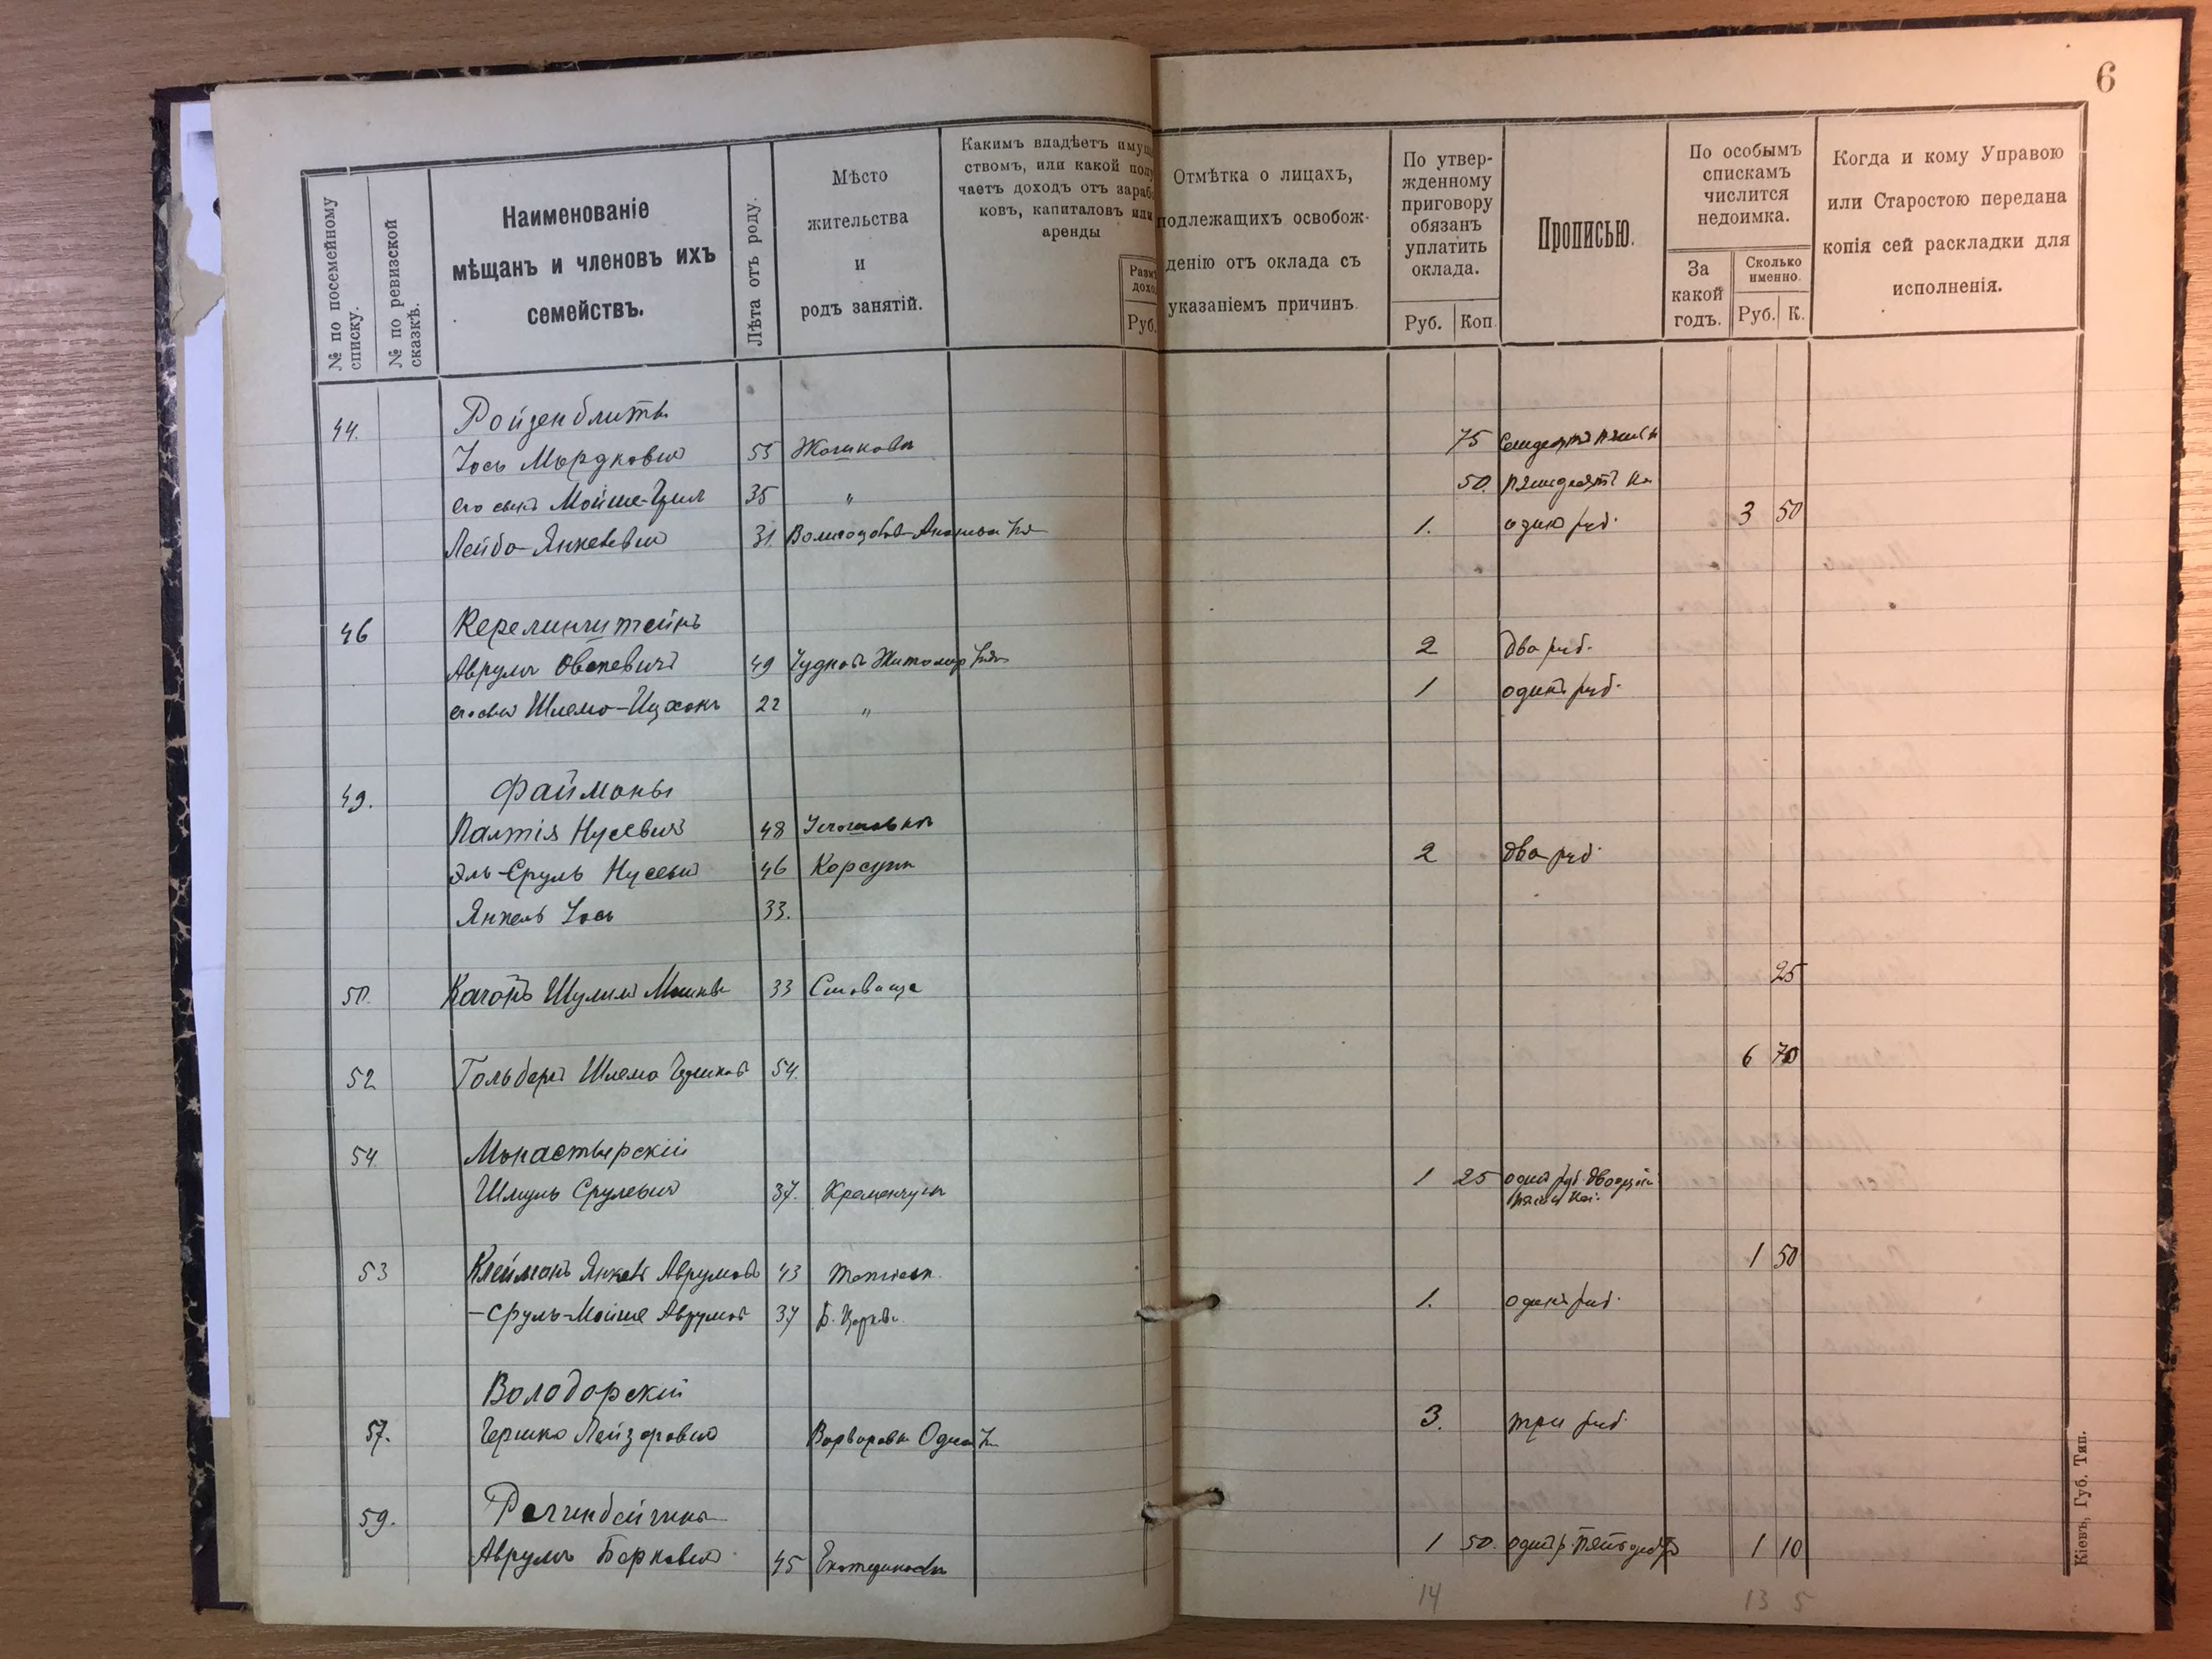 6
№ по посемейному списку.
№ по ревизской сказкѣ.
Наименованіе
мѣщанъ и членовъ ихъ
семействъ.
Лѣта отъ роду.
Мѣсто
жительства
и
родъ занятій.
Какимъ владѣетъ имуще
ствомъ, или какой полу
чаетъ доходъ отъ зараб
ковъ, капиталовъ или
аренды
Разм
дохо
Руб.
Отмѣтка о лицахъ,
подлежащихъ освобож-
денію отъ оклада съ
указаніемъ причинъ.
По утвер-
жденному
приговору
обязанъ
уплатить
оклада.
Руб. Коп.
Прописью.
По особымъ
спискамъ
числится
недоимка.
За
какой
годъ.
Сколько
именно.
Руб. К.
Когда и кому Управою
или Старостою передана
копія сей раскладки для
исполненія.
44. Ройзенблитъ
Іось Мордковичъ 55 Жашковъ 75
его сынъ Мойше- 35 " 50.
Лейба Янкелевичъ 31. 1. одинъ руб. 3 50
46
Аврумъ 49 Чудновъ Житомир 2 два руб.
его сынъ Шлемо-Ицхокъ 22 " 1 одинъ руб.
49. Файмоны
Палтія Нусевичъ 48
Эль-Сруль Нусевичъ 46 Корсунь 2 два руб.
Янкель Іось 33.
50. Шулимъ 33 25
52 Гольберг Шлема 54. 6 70
54 Монастырскій
Шмуль Срулевичъ 37. Кременчугъ 1 25 одинъ руб. двадцать
пять коп.
53 Клейманъ Янкель Аврумовъ 43 1 50
-Сруль-Мойше Аврумовъ 37 Б. Церковь 1. одинъ руб.
Володорскій
57. Гершко Лейзоровичъ 3. три руб.
59.
Аврумъ Берковичъ 45 1 50. один р. пятьдесят 1 10
14 13 5
Кіевъ, Губ. Тип.